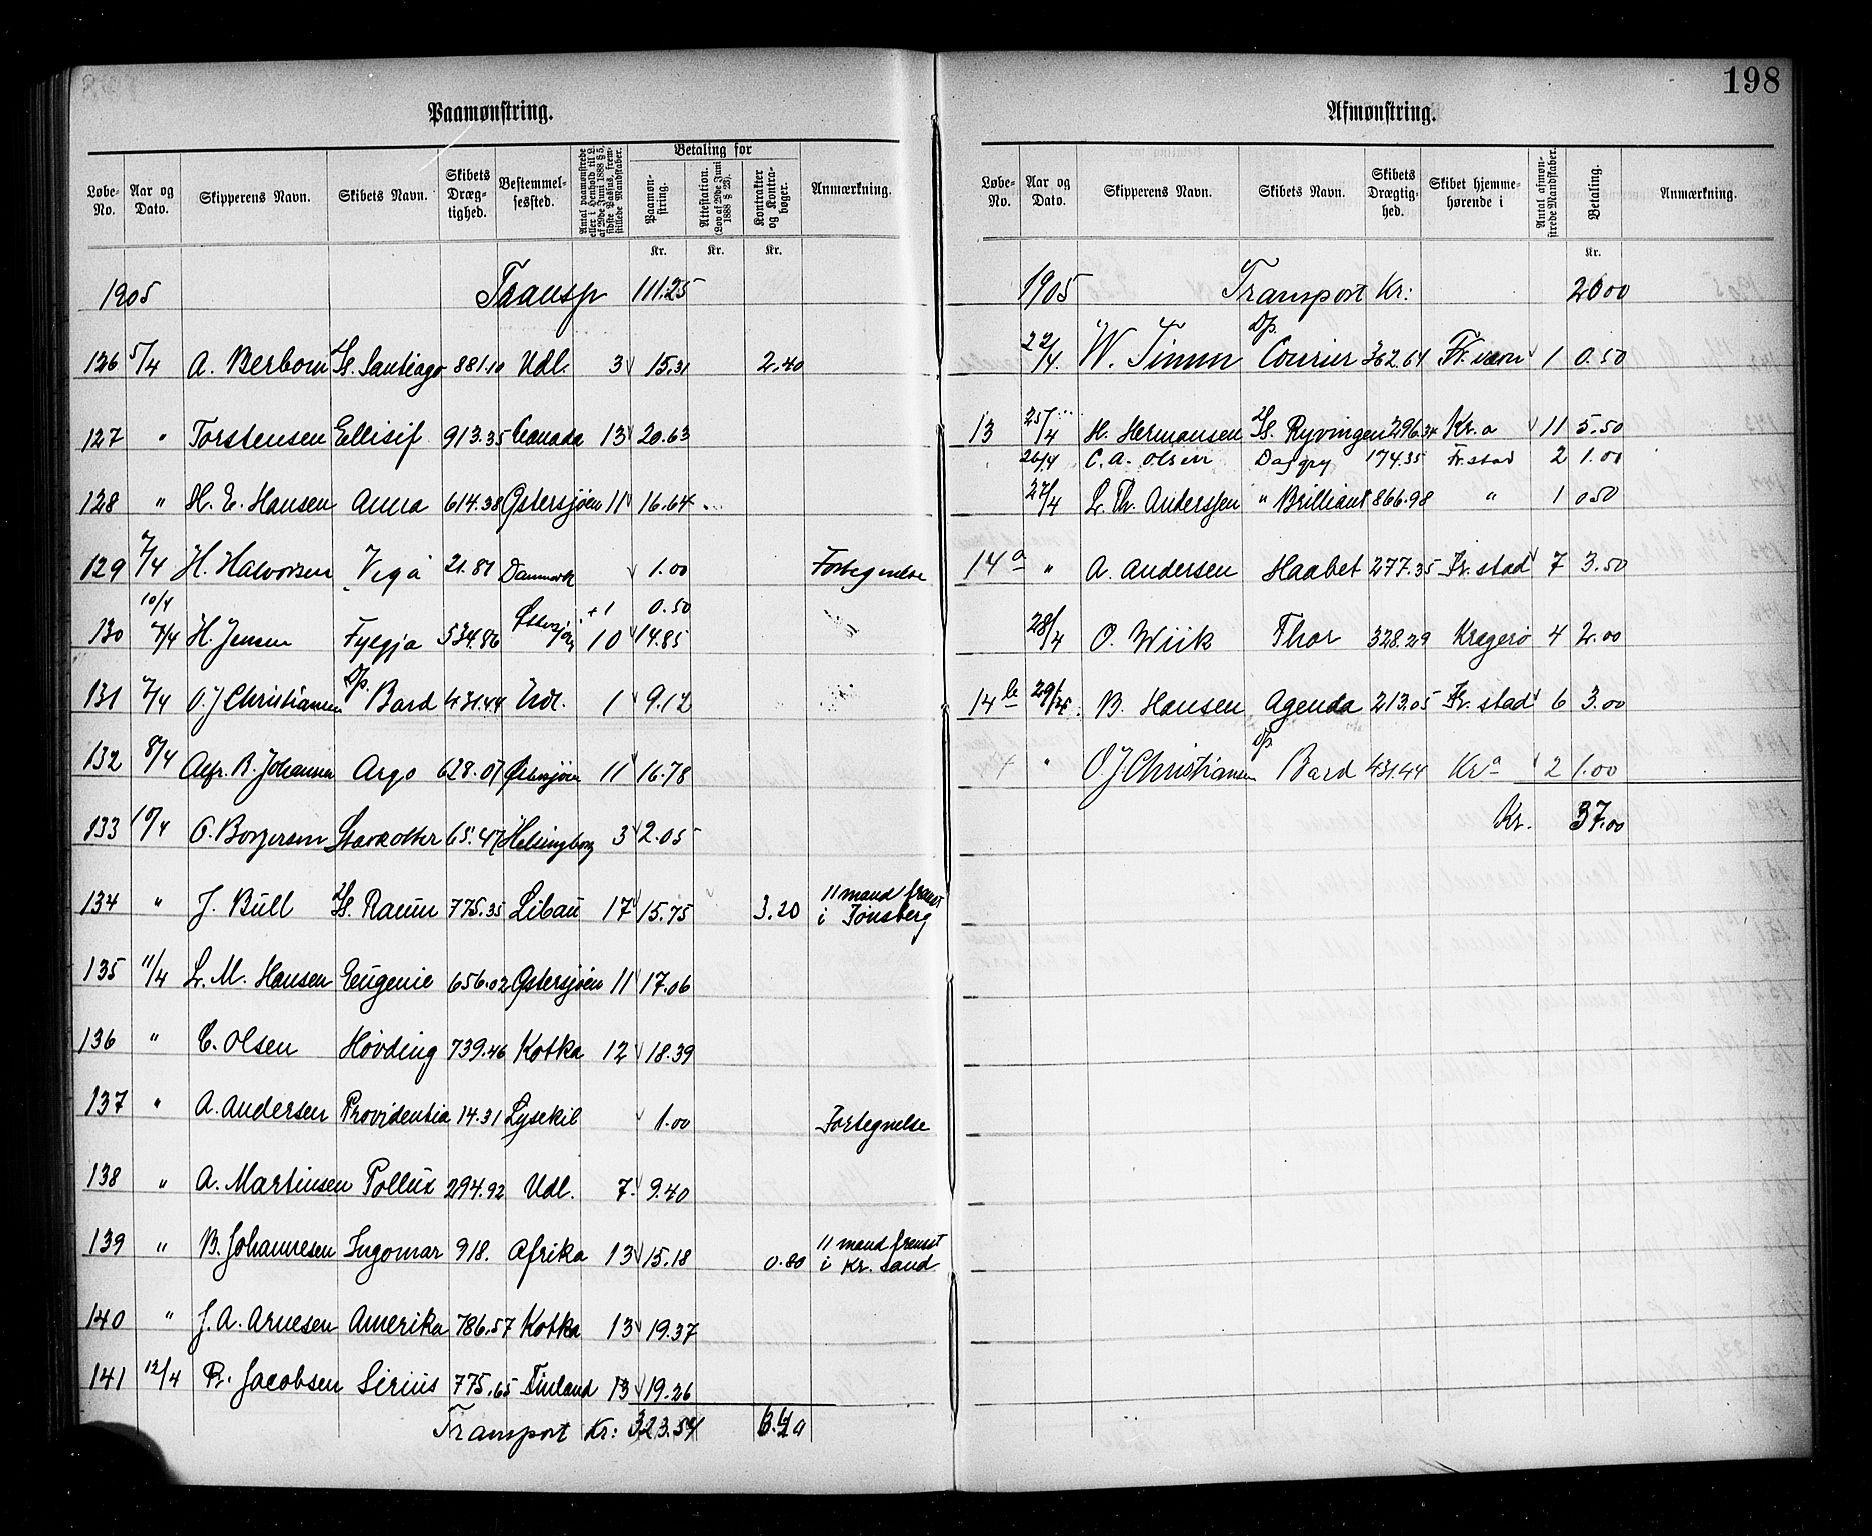 198
Paamønstring.
Løbe-No. | Aar og Dato. | Skipperens Navn. | Skibets Navn. | Skibets Dræg-tighed. | Bestemmel-sessted. | Antal paamønstrede eller i Henhold til L. af 29de Juni 1888 § 5, sidste Passus, frem-stillede Mandskaber. | Betaling for | Paamøn-string. Kr. | Attestation. (Lov af 29de Juni 1888 § 25). Kr. | Kontrakter og Kontra-bøger. Kr. | Anmærkning.
1905 Transp 111.25
126 5/4 A. Berbom Ss. Santiago 881.10 Udl. 3 15.31 2.40
127 " Torstensen Ellisif 913.35 Canada 13 20.63
128 " H. E. Hansen Anna 614.38 Østersjøen 11 16.64
129 7/4 H. Halvorsen Vega 21.87 Danmark 1.00 Fortegnelse
10/4 +1 0.50
130 7/4 H. Jensen Fylgja 534.86 Østersjøen 10 14.85
131 7/4 O. J Christiansen Dp. Bard 431.44 Udl. 1 9.12
132 8/4 Alfr. B. Johansen Argo 628.07 Østersjøen 11 16.78
133 10/4 Borgersen Starkotter 65.47 Helsingborg 3 2.05
134 " J. Bull Ss. Raum 775.35 Libau 17 15.75 3.20 11 mand fremst i Tønsberg
135 11/4 L. M. Hansen Eugenie 656.02 Østersjøen 11 17.06
136 " C. Olsen Høvding 739.46 Kotka 12 18.39
137 " A. Andersen Providentia 14.31 Lysekil 1.00 Fortegnelse
138 " A. Martinsen Pollux 294.92 Udl. 7 9.40
139 " B. Johannesen Ingomar 918. Afrika 13 15.18 0.80 11 mand fremst i Kr. sand
140 " J. A. Arnesen Amerika 786.57 Kotka 13 19.37
141 12/4 R. Jacobsen Sirius 775.65 Finland 13 19.26
Transport Kr: 323.54 6.40
Afmønstring.
Løbe-No. | Aar og Dato. | Skipperens Navn. | Skibets Navn. | Skibets Drægtig-hed. | Skibet hjemme-hørende i | Antal afmøn-strede Mandskaber. | Betaling. Kr. | Anmærkning.
1905 Transport Kr: 20.00
22/4. W. Timm Dp. Courier 362.64 1 0.50
13 25/4 H. Hermansen Ss. Ryvingen 296.34 Kr.a 11 5.50
26/4 C. A. Olsen Dagry 174.35 Fr.stad 2 1.00
27/4 L. Th. Anderssen " Brilliant 866.98 " 1 0.50
14a " A. Andersen Haabet 277.35 Fr. stad 7 3.50
28/4 O. Wiik Thor 328.29 Kragerø 4 2.00
14b 29/4 B. Hansen Agenda 213.05 Fr. stad 6 3.00
" O. J Christiansen Dp. Bard 431.44 Kra 2 1.00
Kr. 37.00